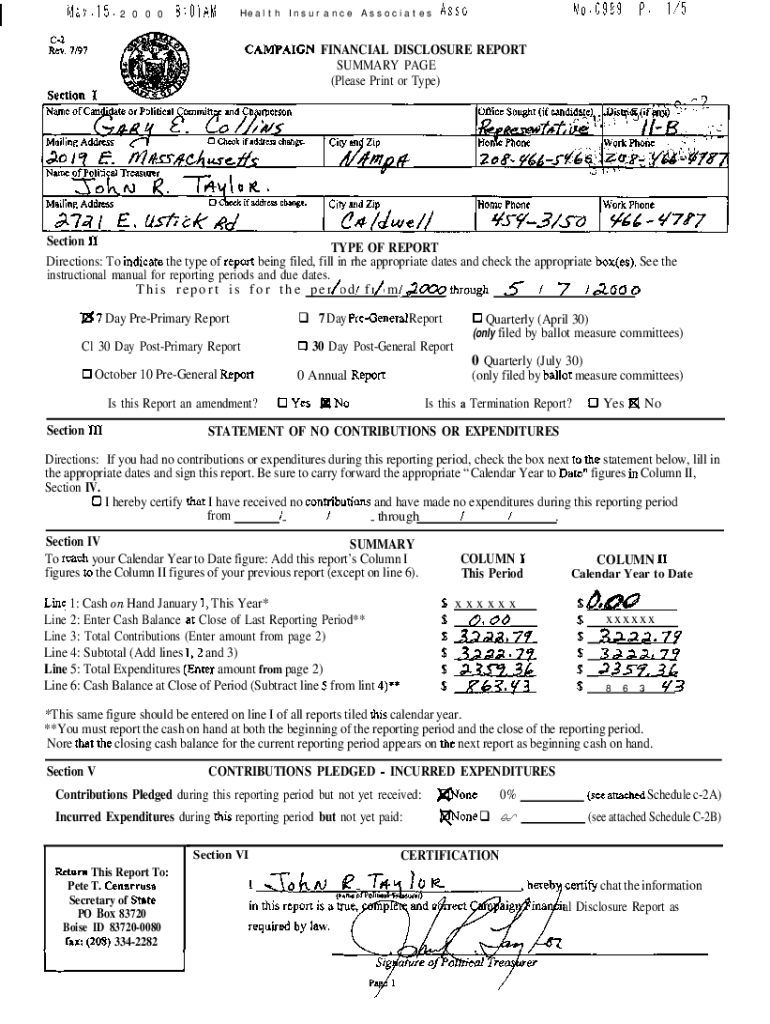 Mar. 15. 2000 8:01AM Health Insurance Associates Asso No. 0989 P. 1/5
C-2
Rev. 7/97
CAMPAIGN FINANCIAL DISCLOSURE REPORT
SUMMARY PAGE
(Please Print or Type)
Section I
Name of Candidate or Political Committee and Chairperson Office Sought (if candidate) District (if any)
GARY E. COllins Representative 11-B
Mailing Address ☐ Check if address change. City and Zip Home Phone Work Phone
2019 E. MASSAchusetts NAmpA 208-466-5466 208-466-4787
Name of Political Treasurer
John R. TAylor.
Mailing Address ☐ Check if address change. City and Zip Home Phone Work Phone
2721 E. Ustick Rd CAldwell 454-3150 466-4787
Section II
TYPE OF REPORT
Directions: To indicate the type of report being filed, fill in rhe appropriate dates and check the appropriate box(es). See the
instructional manual for reporting periods and due dates.
This report is for the period/ fr/m/ 2000 through 5 / 7 / 2000
☒ 7 Day Pre-Primary Report ☐ 7 Day Pre-General Report ☐ Quarterly (April 30)
(only filed by ballot measure committees)
Cl 30 Day Post-Primary Report ☐ 30 Day Post-General Report
0 Quarterly (July 30)
☐ October 10 Pre-General Report 0 Annual Report (only filed by ballot measure committees)
Is this Report an amendment? ☐ Yes ☒ No Is this a Termination Report? ☐ Yes ☒ No
Section III STATEMENT OF NO CONTRIBUTIONS OR EXPENDITURES
Directions: If you had no contributions or expenditures during this reporting period, check the box next to the statement below, lill in
the appropriate dates and sign this report. Be sure to carry forward the appropriate “Calendar Year to Date” figures in Column II,
Section IV.
☐ I hereby certify that I have received no contributions and have made no expenditures during this reporting period
from / / through / / .
Section IV SUMMARY
To reach your Calendar Year to Date figure: Add this report’s Column I COLUMN I COLUMN II
figures to the Column II figures of your previous report (except on line 6). This Period Calendar Year to Date
Line 1: Cash on Hand January 1, This Year* $ XXXXXX $ 0.00
Line 2: Enter Cash Balance at Close of Last Reporting Period** $ 0.00 $ XXXXXX
Line 3: Total Contributions (Enter amount from page 2) $ 3222.79 $ 3222.79
Line 4: Subtotal (Add lines 1, 2 and 3) $ 3222.79 $ 3222.79
Line 5: Total Expenditures (Enter amount from page 2) $ 2359.36 $ 2359.36
Line 6: Cash Balance at Close of Period (Subtract line 5 from lint 4)** $ 863.43 $ 863 43
*This same figure should be entered on line I of all reports tiled this calendar year.
**You must report the cash on hand at both the beginning of the reporting period and the close of the reporting period.
Nore that the closing cash balance for the current reporting period appears on the next report as beginning cash on hand.
Section V CONTRIBUTIONS PLEDGED - INCURRED EXPENDITURES
Contributions Pledged during this reporting period but not yet received: ☒ None 0% (see attached Schedule c-2A)
Incurred Expenditures during this reporting period but not yet paid: ☒ None ☐ (see attached Schedule C-2B)
Section VI CERTIFICATION
Return This Report To:
Pete T. Cenarrusa
Secretary of State
PO Box 83720
Boise ID 83720-0080
fax: (208) 334-2282
I John R. TAylOR, hereby certify chat the information
(Name of Political Treasurer)
in this report is a true, complete and correct Campaign Financial Disclosure Report as
required by law.
John Taylor
Signature of Political Treasurer
Page 1